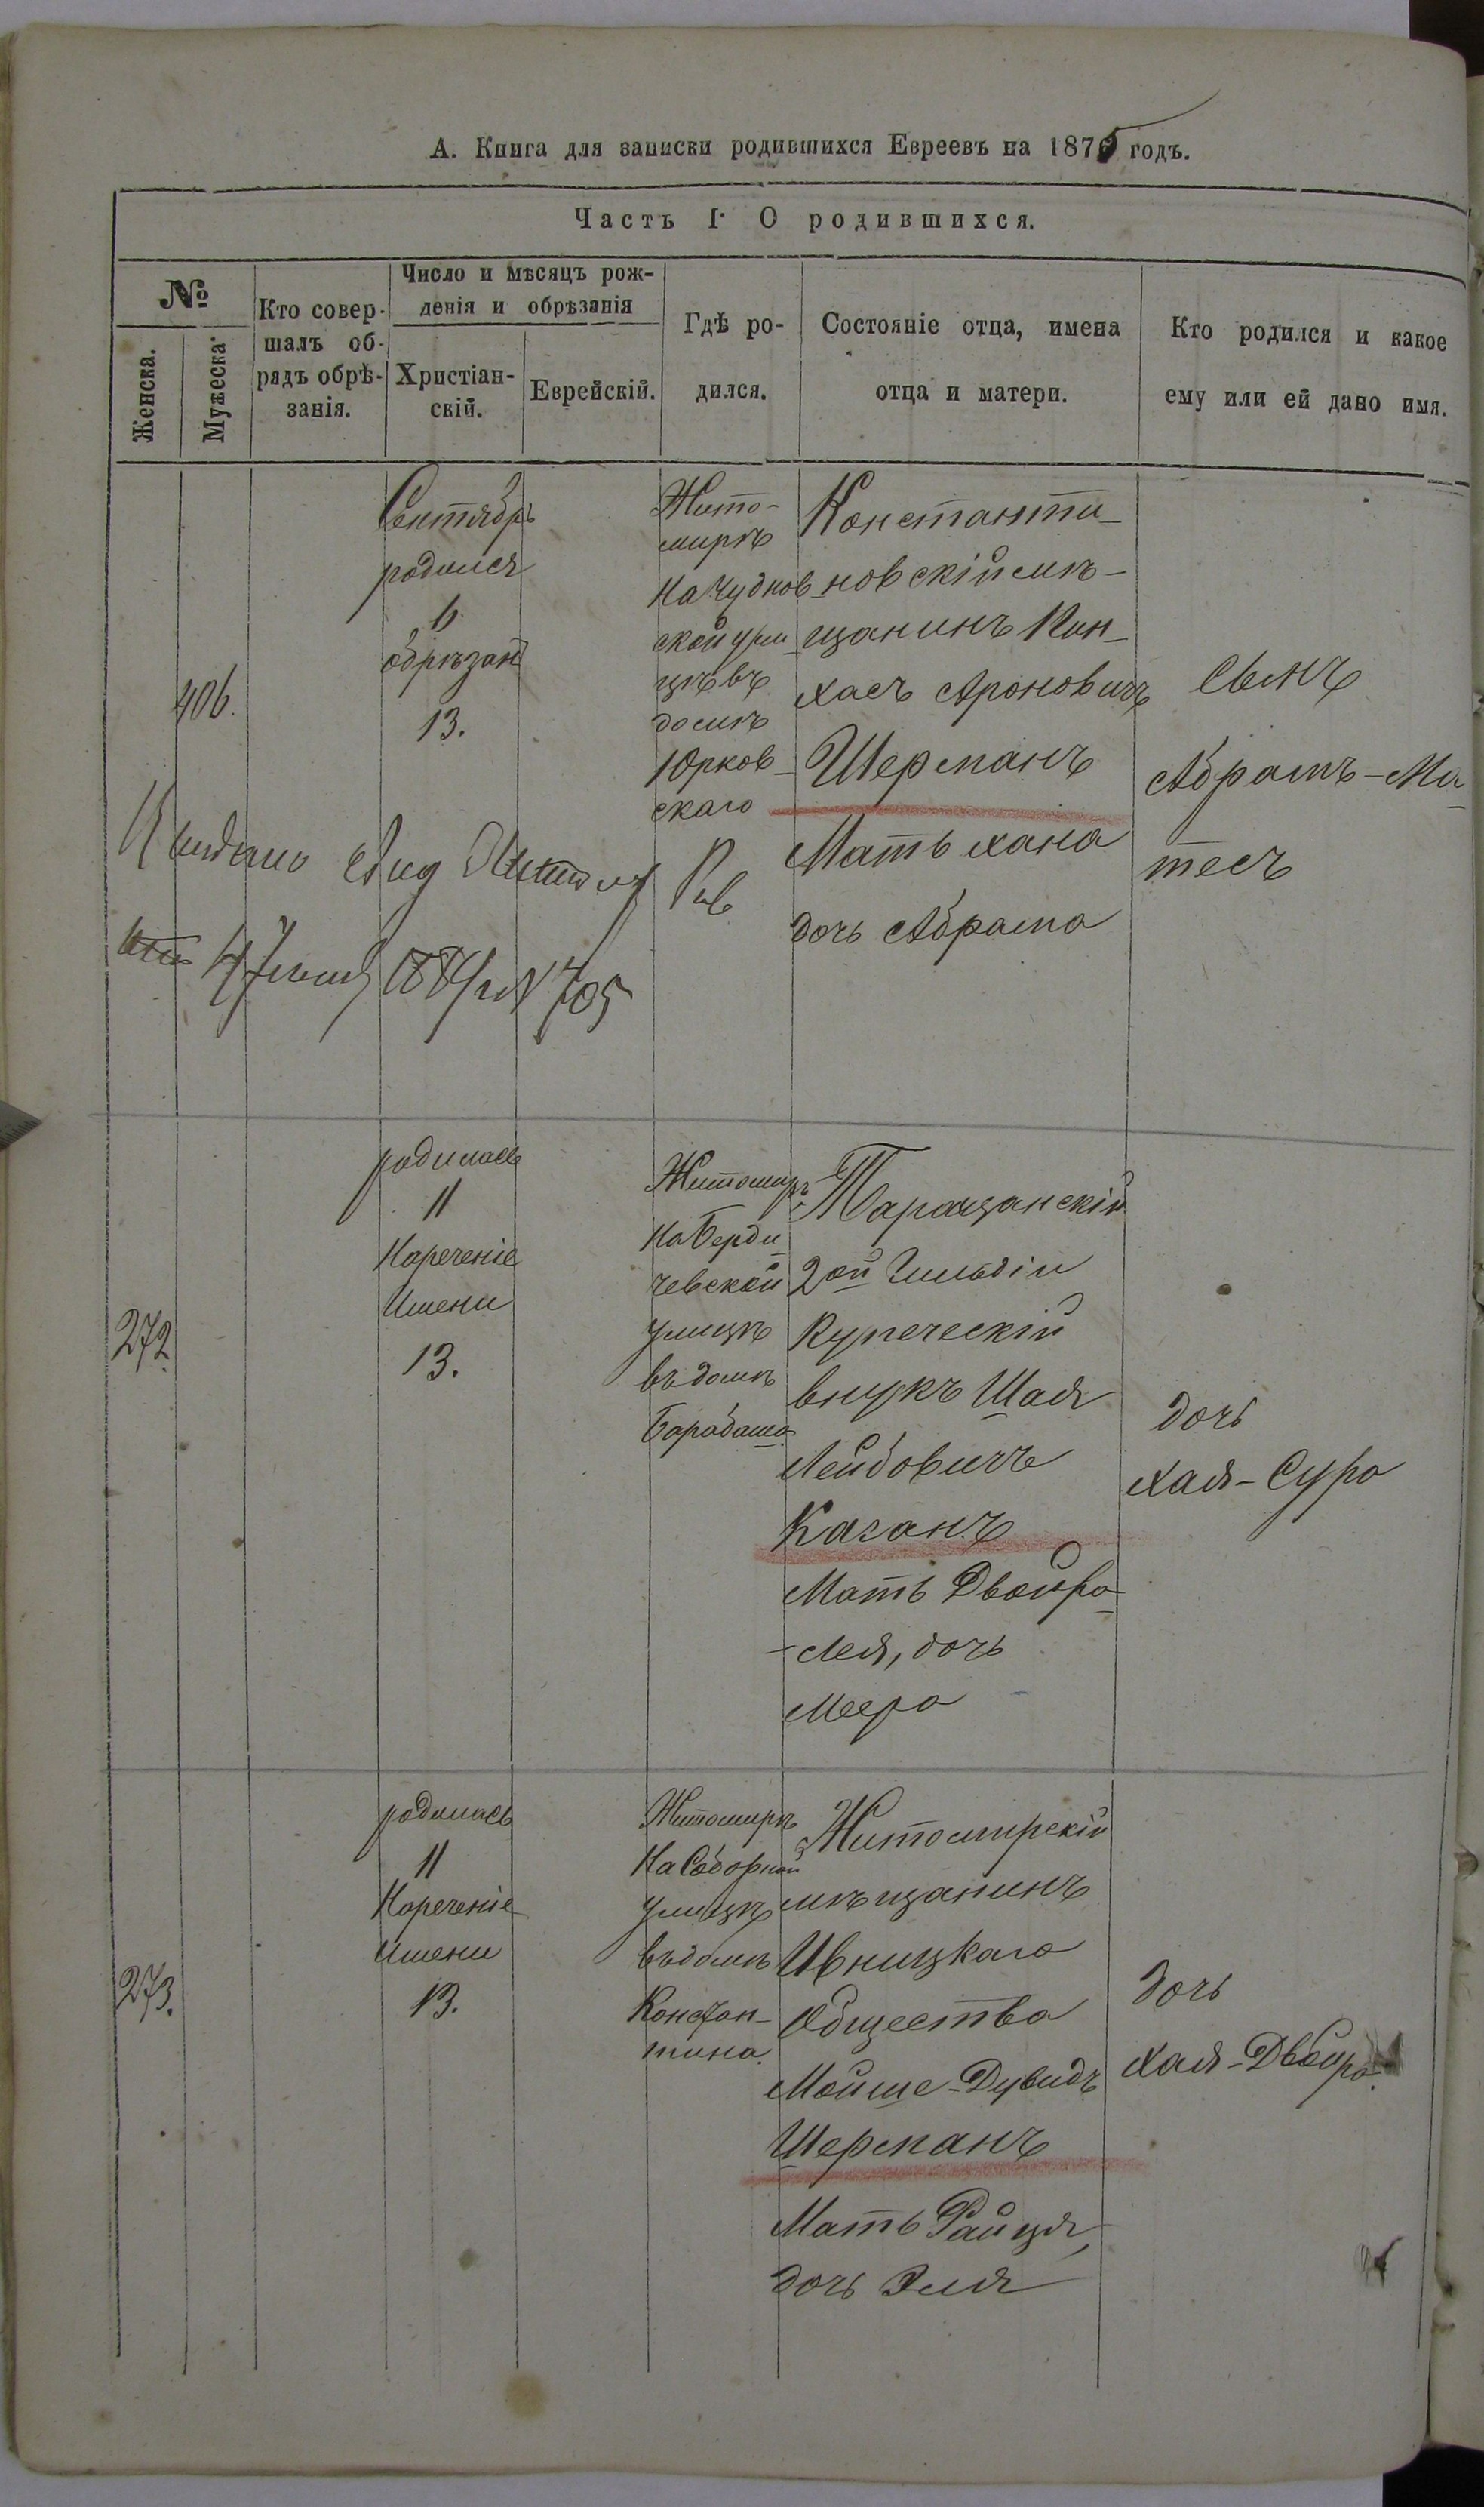 А. Книга для записки родившихся Евреевъ на 1875 годъ.
Часть I. О родившихся.
№
Женска.
Мужеска
Кто совер-
шалъ об-
рядъ обрѣ-
занія.
Число и мѣсяцъ рож-
денія и обрѣзанія
Христіан-
скій.
Еврейскій.
Гдѣ ро-
дился.
Состояніе отца, имена
отца и матери.
Кто родился и какое
ему или ей дано имя.
406.
Сентябрь
родился
6
обрѣзанъ
13.
Жито-
миръ
на Чуднов
ской ули
цѣ въ
домѣ
Юрков-
скаго
Константи-
новскій мѣ-
щанинъ Пин-
хасъ Ароновичъ
Шерманъ
Мать Хана
дочь Абрама
Сынъ
Абрамъ-Ма
тесъ
Выдано
1884 г. № 705
272.
родилась
11
Нареченіе
Имени
13.
Житомиръ
на Берди
чевской
улицѣ
въ домѣ
Барабаша
Таращанскій
2ой Гильдіи
Купеческій
внукъ Шая
Лейбовичъ
Каганъ
Мать Двойра-
-Лея, дочь
Меера
дочь
Хая-Сура
273.
родилась
11
Нареченіе
Имени
13.
Житомиръ
на Соборной
улицѣ
въ домѣ
Констан-
тина.
Житомирскій
мѣщанинъ
Ивницкаго
Общества
Мойше-Дувидъ
Шерманъ
Мать Райця,
дочь Эля
дочь
Хая-Двойра.